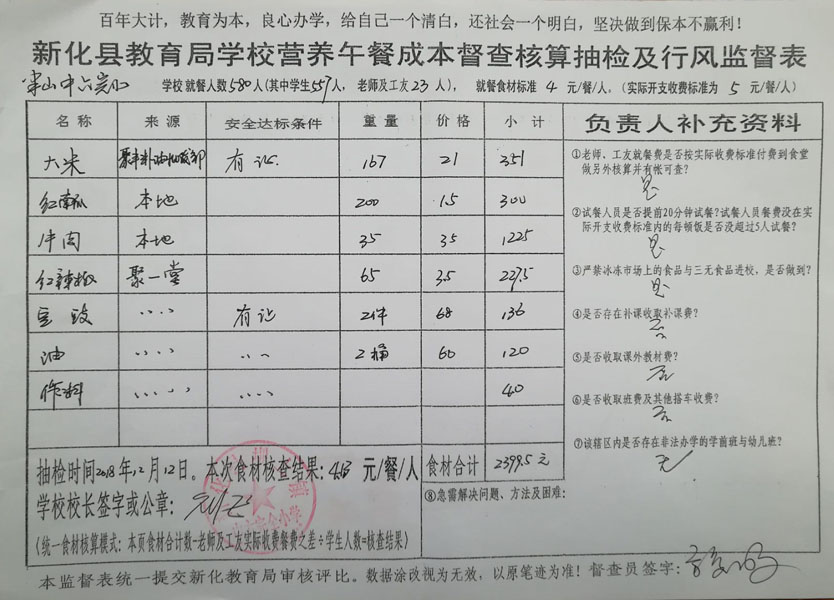 百年大计，教育为本，良心办学，给自己一个清白，还社会一个明白，坚决做到保本不赢利！
新化县教育局学校营养午餐成本督查核算抽检及行风监督表
学校就餐人数580人(其中学生557人，老师及工友23人)， 就餐食材标准 4 元/餐/人，(实际开支收费标准为 5 元/餐/人)
名称 来源 安全达标条件 重量 价格 小计 负责人补充资料
大米 有证 167 21 351
红南瓜 本地 200 1.5 300
牛肉 本地 35 35 1225
红辣椒 聚一堂 65 3.5 227.5
豆豉 〃 有证 2件 68 136
油 〃 〃 2桶 60 120
作料 〃 〃 40
①老师、工友就餐费是否按实际收费标准付费到食堂
做另外核算并有帐可查？
是
②试餐人员是否提前20分钟试餐？试餐人员餐费没在实
际开支收费标准内的每顿饭是否没超过5人试餐？
是
③严禁冰冻市场上的食品与三无食品进校，是否做到？
是
④是否存在补课收取补课费？
否
⑤是否收取课外教材费？
否
⑥是否收取班费及其他搭车收费？
否
⑦该辖区内是否存在非法办学的学前班与幼儿班？
无
抽检时间2018年12月12日。本次食材核查结果：4.13 元/餐/人 食材合计 2399.5元
学校校长签字或公章：
⑧急需解决问题、方法及困难：
(统一食材核算模式：本页食材合计数-老师及工友实际收费餐费之差÷学生人数=核查结果)
本监督表统一提交新化教育局审核评比。数据涂改视为无效，以原笔迹为准！督查员签字：